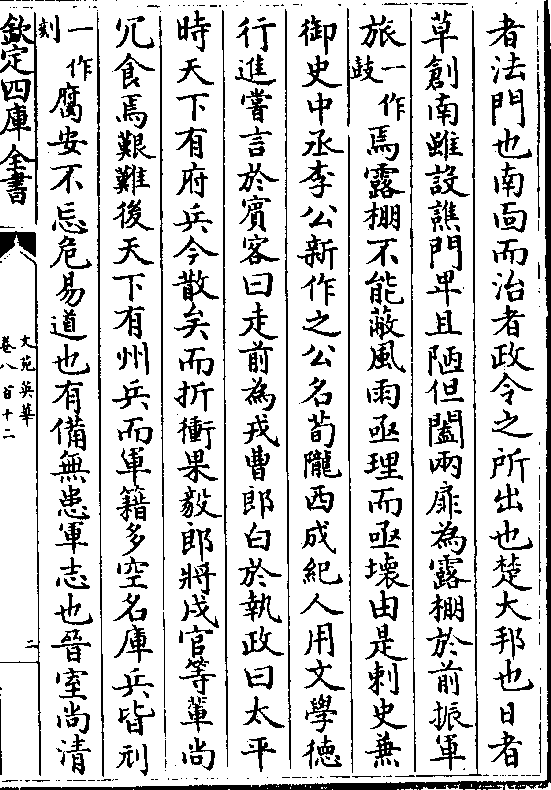 者法門也南面而治者政令之所出也楚大邦也日者
草創南雖設譙門卑且陋但闔兩扉為露棚於前振軍
旅一作鼓焉露棚不能蔽風雨亟理而亟壞由是刺史兼
御史中丞李公新作之公名荀隴西成紀人用文學德
行進嘗言於賓客曰走前為戎曹郎白於執政曰太平
時天下有府兵今散矣而折衝果毅郎將戌官等輩尚
冗食焉艱難後天下有州兵而軍籍多空名庫兵皆刓
一作刻腐安不忘危易道也有備無患軍志也晉室尚清
欽定四庫全書
文苑英華
卷八百十二
二